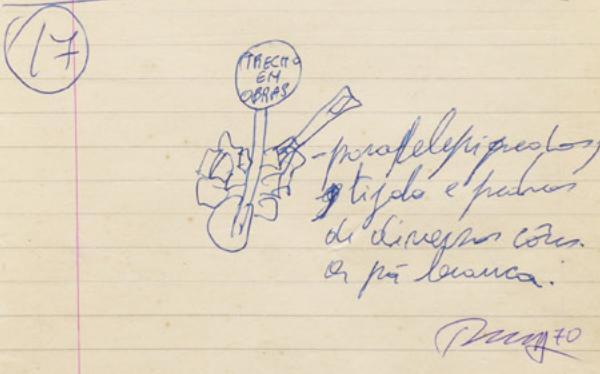 17
TRECHO
EM
OBRAS
- paralelepipedos,
tijolo e panos
de diversas côres.
pá branca.
70